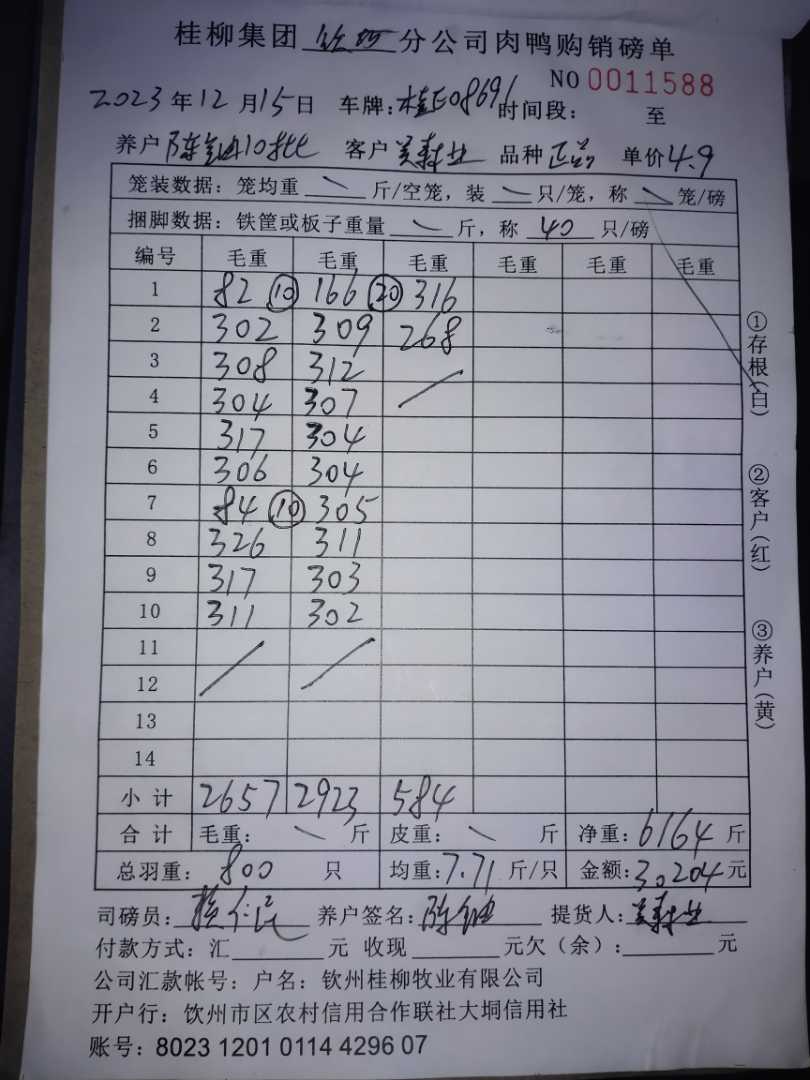 桂柳集团 钦州 分公司肉鸭购销磅单
NO 0011588
2023年12月15日 车牌:桂E08691 时间段: 至
养户 陈 10批 客户 业 品种 正品 单价4.9
笼装数据:笼均重 斤/空笼,装 只/笼,称 笼/磅
捆脚数据:铁筐或板子重量 斤,称 40 只/磅
编号 毛重 毛重 毛重 毛重 毛重 毛重
1 82 ⑩ 166 ⑳ 316
2 302 309 268
3 308 312
4 304 307
5 317 304
6 306 304
7 84 ⑩ 305
8 326 311
9 317 303
10 311 302
11
12
13
14
小计 2657 2923 584
合计 毛重: 斤 皮重: 斤 净重:6164斤
总羽重: 800 只 均重:7.71斤/只 金额:30204元
司磅员: 养户签名:陈 提货人: 业
付款方式:汇 元 收现 元欠(余): 元
公司汇款帐号:户名:钦州桂柳牧业有限公司
开户行:钦州市区农村信用合作联社大垌信用社
账号:8023 1201 0114 4296 07
①存根(白)
②客户(红)
③养户(黄)